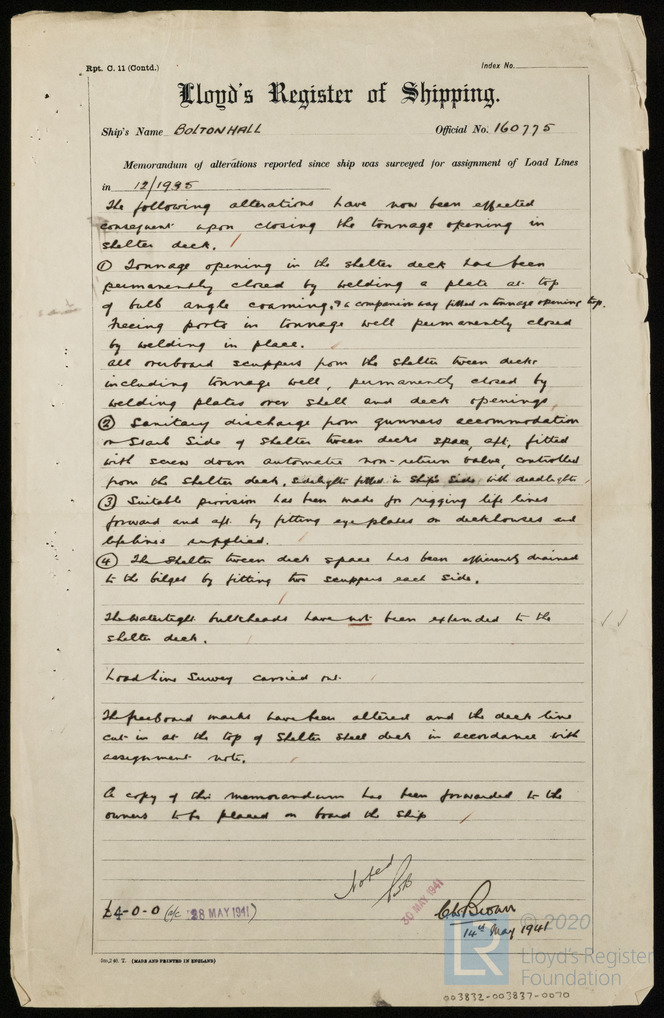 Rpt. C. 11 (Contd.)
Index No.
Lloyd's Register of Shipping.
Ship's Name BOLTONHALL Official No. 160775
Memorandum of alterations reported since ship was surveyed for assignment of Load Lines
in 12/1935
The following alterations have now been effected
consequent upon closing the tonnage opening in
shelter deck.
① Tonnage opening in the shelter deck has been
permanently closed by welding a plate at top
of bulb angle coaming, & a companion way fitted in tonnage opening top.
Freeing ports in tonnage well permanently closed
by welding in place.
All overboard scuppers from the shelter tween decks
including tonnage well, permanently closed by
welding plates over shell and deck openings
② Sanitary discharge from gunners accommodation
on Starb Side of shelter tween decks space, aft, fitted
with screw down automatic non-return valve, controlled
from the shelter deck. Sidelights fitted in ship's side with deadlights
③ Suitable provision has been made for rigging life lines
forward and aft by fitting eyeplates on deckhouses and
lifelines supplied.
④ The Shelter tween deck space has been efficiently drained
to the bilges by fitting two scuppers each side.
The watertight bulkheads have not been extended to the
shelter deck.
Load Line Survey carried out.
The freeboard marks have been altered and the deck line
cut in at the top of Shelter Steel deck in accordance with
assignment note.
A copy of this memorandum has been forwarded to the
owners to be placed on board the ship
Noted
30 MAY 1941
£4-0-0 (a/c 28 MAY 1941)
Brown
14th May 1941
© 2020
LR
Lloyd's Register
Foundation
5m,2 40. T. (MADE AND PRINTED IN ENGLAND)
003832-003837-0070